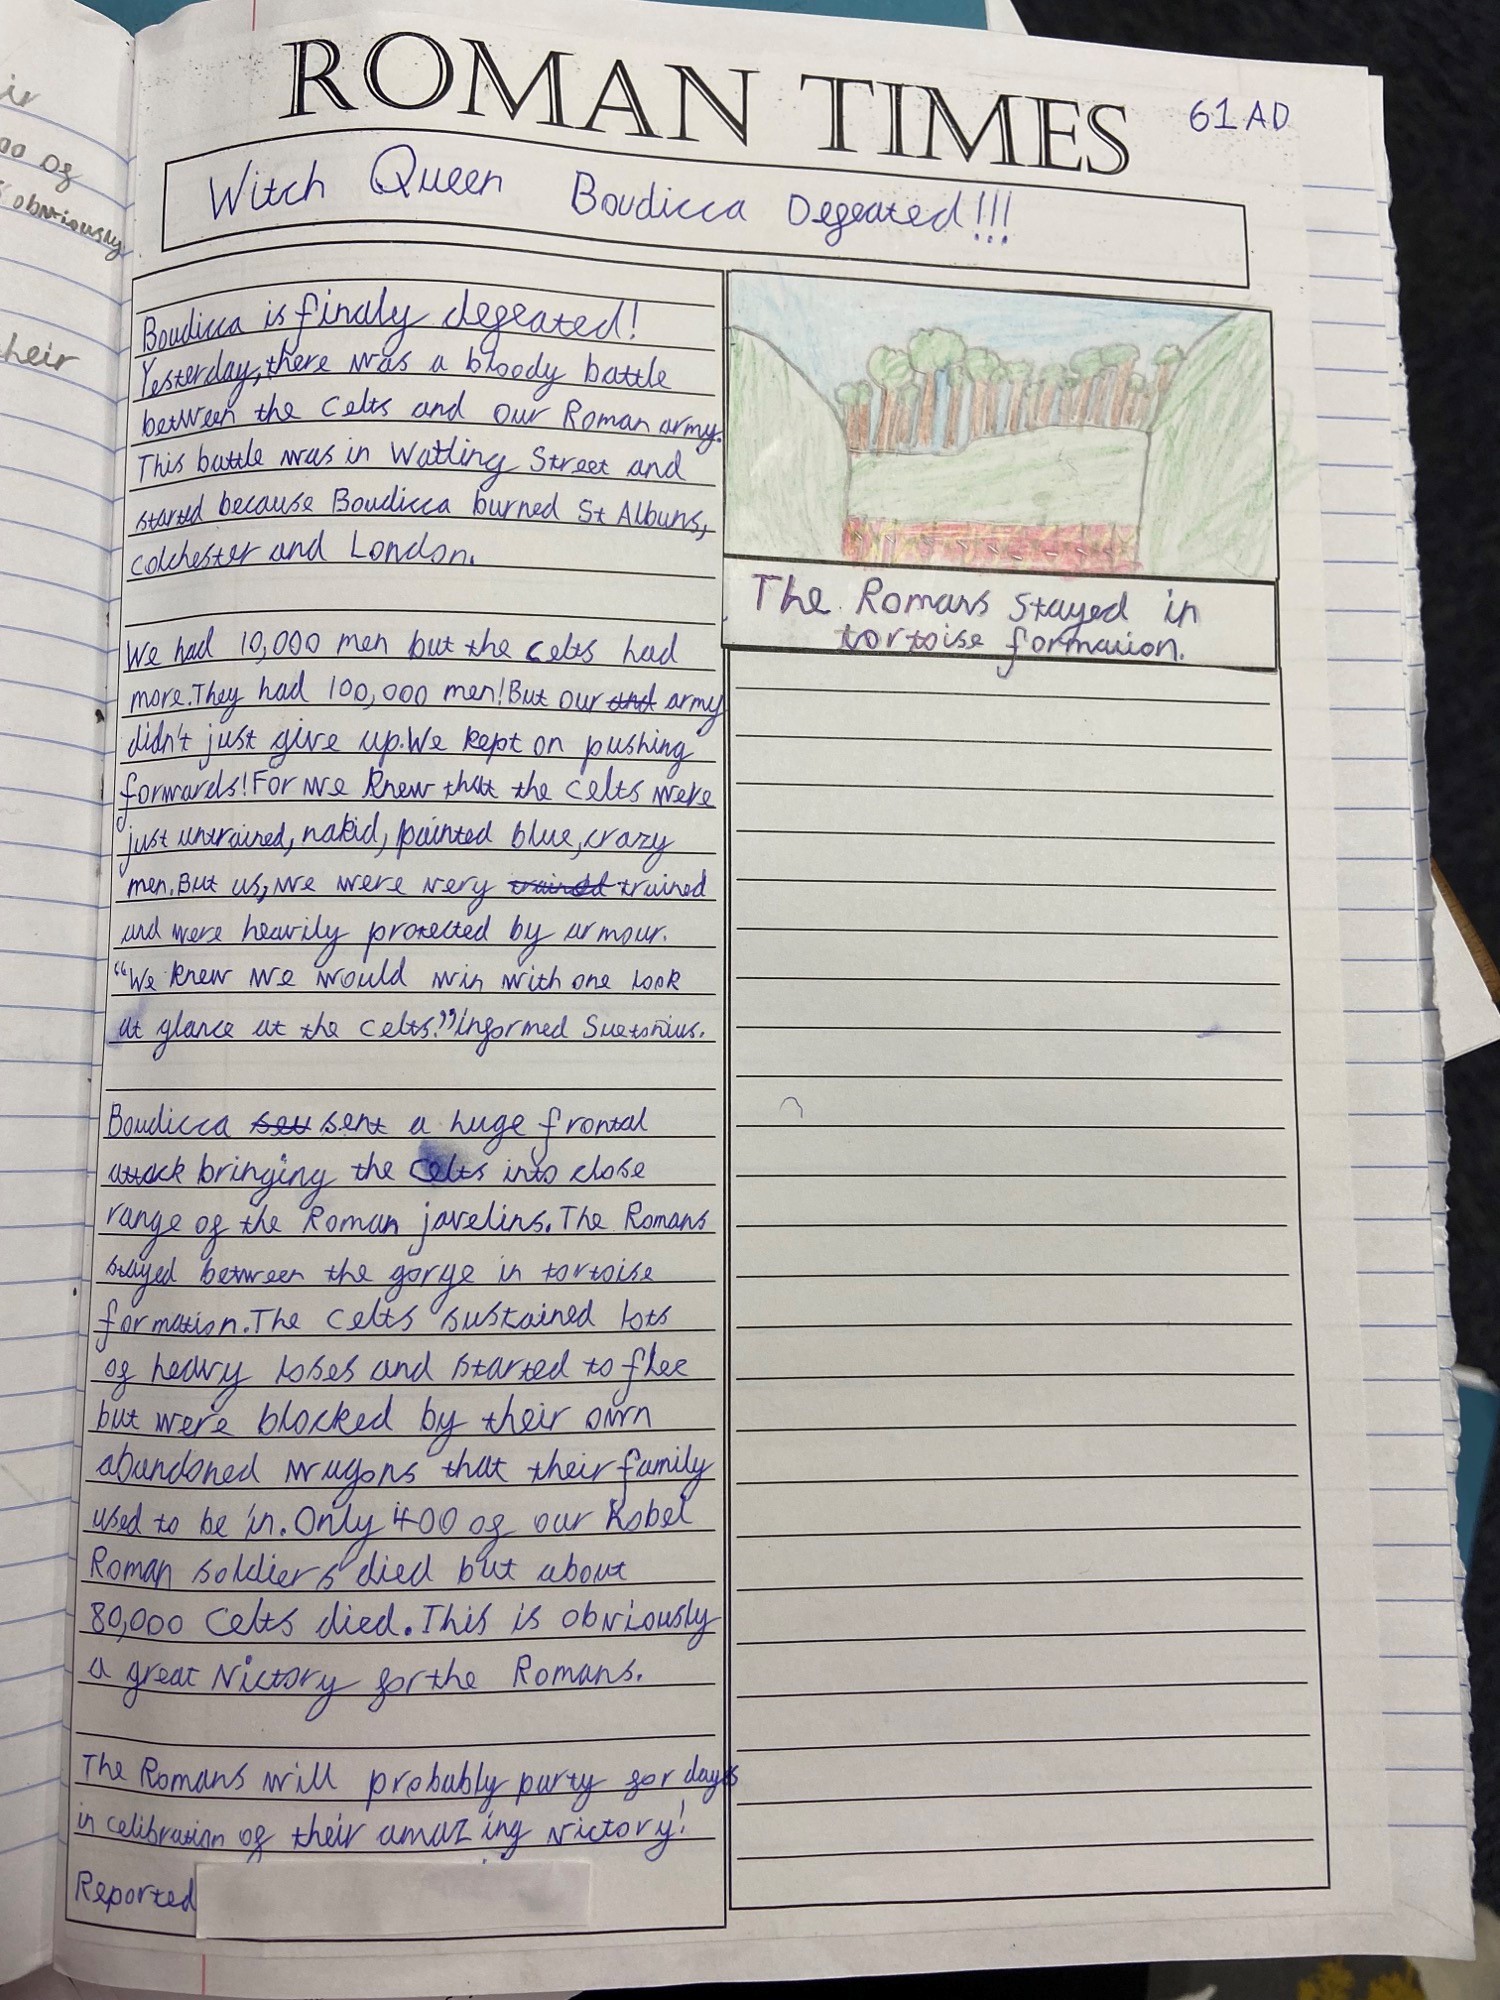 ir
00 of
obviously
heir
ROMAN TIMES
61 AD
Witch Queen Boudicca Defeated!!!
Boudicca is finaly defeated!
Yesterday, there was a bloody battle
between the Celts and our Roman army.
This battle was in Watling Street and
started because Boudicca burned St Albuns,
colchester and London.
We had 10,000 men but the celts had
more. They had 100,000 men! But our and army
didn't just give up. We kept on pushing
forwards! For we knew that the celts were
just untrained, nakid, painted blue, crazy
men. But us, we were very trained trained
and were heavily protected by armour.
"We knew we would win with one look
at glance at the celts." informed Suetonius.
Boudicca set sent a huge frontal
attack bringing the Celts into close
range of the Roman javelins. The Romans
stayed between the gorge in tortoise
formation. The celts sustained lots
of heavy loses and started to flee
but were blocked by their own
abandoned wagons that their family
used to be in. Only 400 of our Nobel
Roman soldiers died but about
80,000 Celts died. This is obviously
a great victory for the Romans.
The Romans will probably party for days
in celibration of their amazing victory!
Reported
The Romans stayed in
tortoise formation.